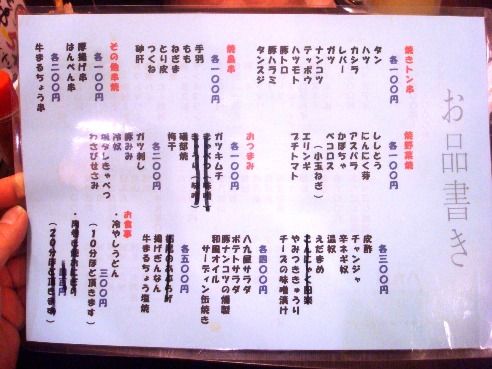 お品書き
焼きトン串
各一〇〇円
タン
ハツ
カシラ
レバー
ガツ
ナンコツ
テッポウ
ハツモト
豚トロ
豚ハラミ
タンスジ
焼鳥串
各一〇〇円
手羽
もも
ねぎま
とり皮
つくね
砂肝
その他串焼
各一〇〇円
厚揚げ串
はんぺん串
各二〇〇円
牛まるちょう串
焼野菜焼
各一〇〇円
ししとう
にんにく芽
アスパラ
かぼちゃ
ペコロス
(小玉ねぎ)
エリンギ
プチトマト
おつまみ
各一〇〇円
ガツキムチ
磯部焼
梅干
各二〇〇円
ガツ刺し
豚みみ
冷奴
塩だしきゃべつ
わさびせさみ
各三〇〇円
皮酢
チャンジャ
辛ネギ奴
温奴
えだまめ
やみつききゅうり
チーズの味噌漬け
各四〇〇円
八九屋サラダ
ポテトサラダ
豚ナンコツの燻製
和風オイル
サーディン缶焼き
各五〇〇円
揚げぎんなん
牛まるちょう塩焼
お食事
・冷やしうどん
三〇〇円
(10分ほど頂きます)
(20分ほど頂きます)